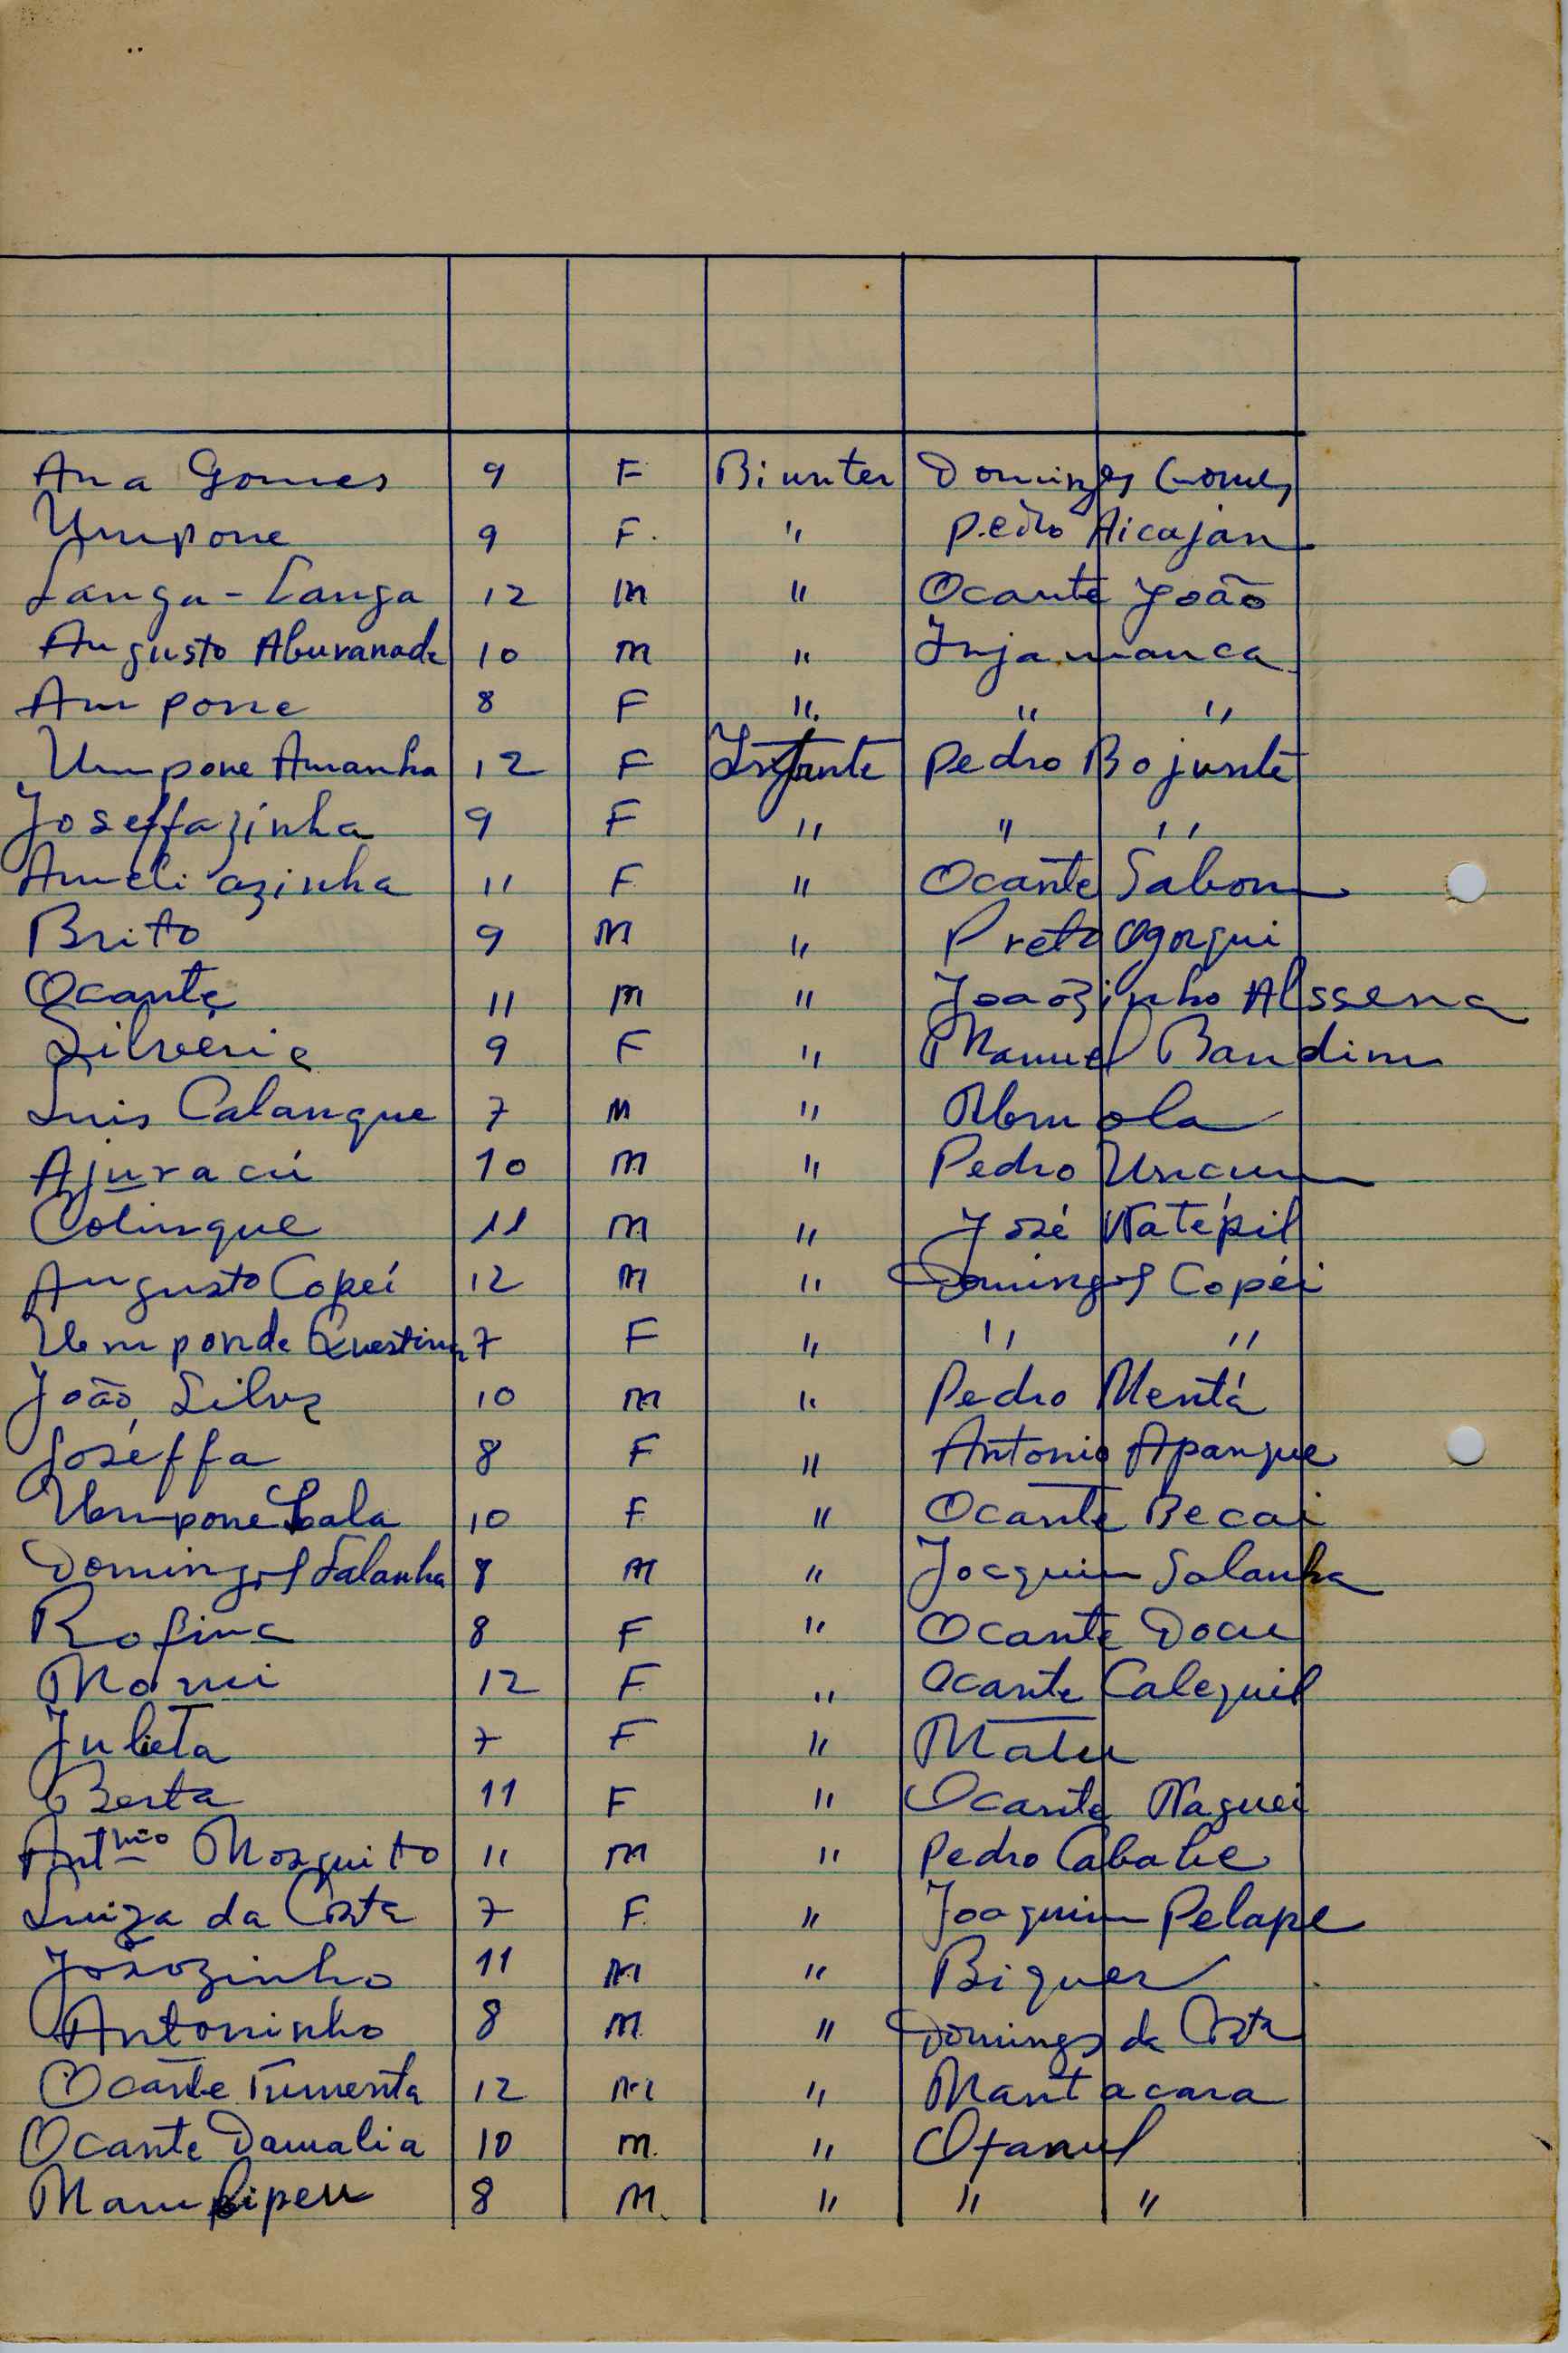 Ana Gomes 9 F Biunter Domingos Gomes
Umpone 9 F. " Pedro Aicajan
Langa-Langa 12 M " Ocante João
Augusto Aburanada 10 M " Injamanca
Ampone 8 F " " "
Umpone Amanha 12 F Infante Pedro Bojunte
Joseffazinha 9 F " " "
Ameliazinha 11 F " Ocante Sabom
Brito 9 M " Preto Ogorgui
Ocante 11 M " Joaozinho Alssena
Silveria 9 F " Manuel Bandim
Luis Calanque 7 M " Umola
Ajuracú 10 M " Pedro Uncum
Colinque 11 M " José Natépil
Augusto Copeí 12 M " Domingos Copéi
Umponde Questina 7 F " " "
João Silva 10 M " Pedro Mentá
Joséffa 8 F " Antonio Apangue
Umpone Lala 10 F " Ocante Becai
Domingos Salanha 8 M " Joaquim Salanha
Rofina 8 F " Ocante Docu
Momi 12 F " Ocante Calequil
Julieta 7 F " Matu
Berta 11 F " Ocante Naguei
Antonio Mosquito 11 M " Pedro Cabate
Luiza da Costa 7 F. " Joaquim Pelape
Joãozinho 11 M " Biquer
Antoninho 8 M " Domingos da Costa
Ocante Tumenta 12 M " Mantacara
Ocante Damalia 10 M. " Ofanul
Mampipeu 8 M. " " "